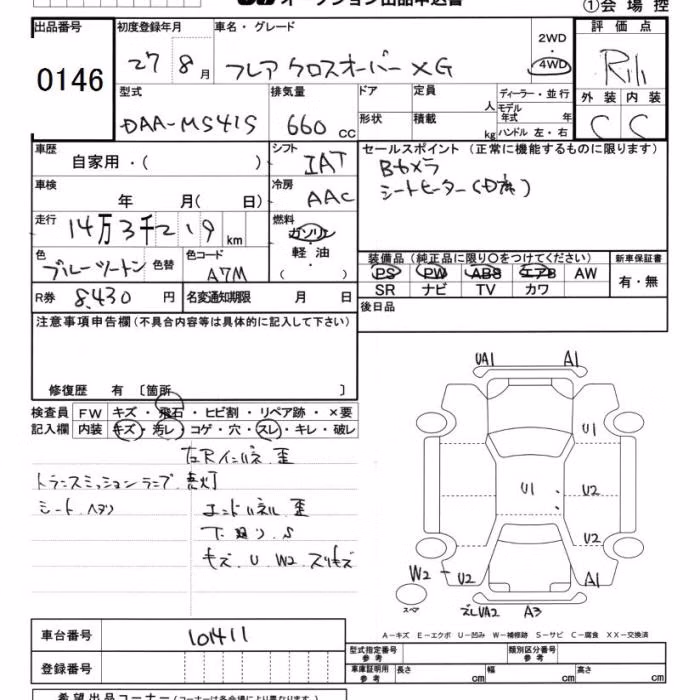 オークション出品申込書
①会場控
出品番号
0146
初度登録年月
27 8月
車名・グレード
フレア クロスオーバー XG
2WD
4WD
評価点
外装 内装
C C
型式
DAA-MS41S
排気量
660 cc
ドア
定員 人
形状
積載 kg
ディーラー・並行
モデル年式 年
ハンドル 左・右
車歴
自家用・( )
シフト
IAT
車検
年 月( 日)
冷房
AAC
走行
14万3千219 km
燃料
ガソリン
軽油
・( )
色
ブルーツートン
色替
色コード
A7M
R券 8,430 円
名変通知期限 月 日
セールスポイント (正常に機能するものに限ります)
Bカメラ
シートヒーター(D席)
装備品 (純正品に限り○をつけてください)
PS PW ABS エアB AW
SR ナビ TV カワ
新車保証書
有・無
後日品
注意事項申告欄 (不具合内容等は具体的に記入して下さい)
修復歴 有 〔箇所 〕
検査員記入欄
FW キズ・飛石・ヒビ割・リペア跡・×要
内装 キズ・汚レ・コゲ・穴・スレ・キレ・破レ
左Rインパネ 歪
トランスミッションランプ 点灯
シート ヘタリ
エンドパネル 歪
下廻り S
キズ U W2 スリキズ
UA1 A1
U1
U1 U2
U2
W2 U2 A1
スペア
ズレUA2 A3
A-キズ E-エクボ U-凹み W-補修跡 S-サビ C-腐食 XX-交換済
車台番号 101411
登録番号
型式指定番号 参考
類別区分番号 参考
車庫証明用 参考 長さ cm 幅 cm 高さ cm
希望出品コーナー (コーナーは各会場により異なります)